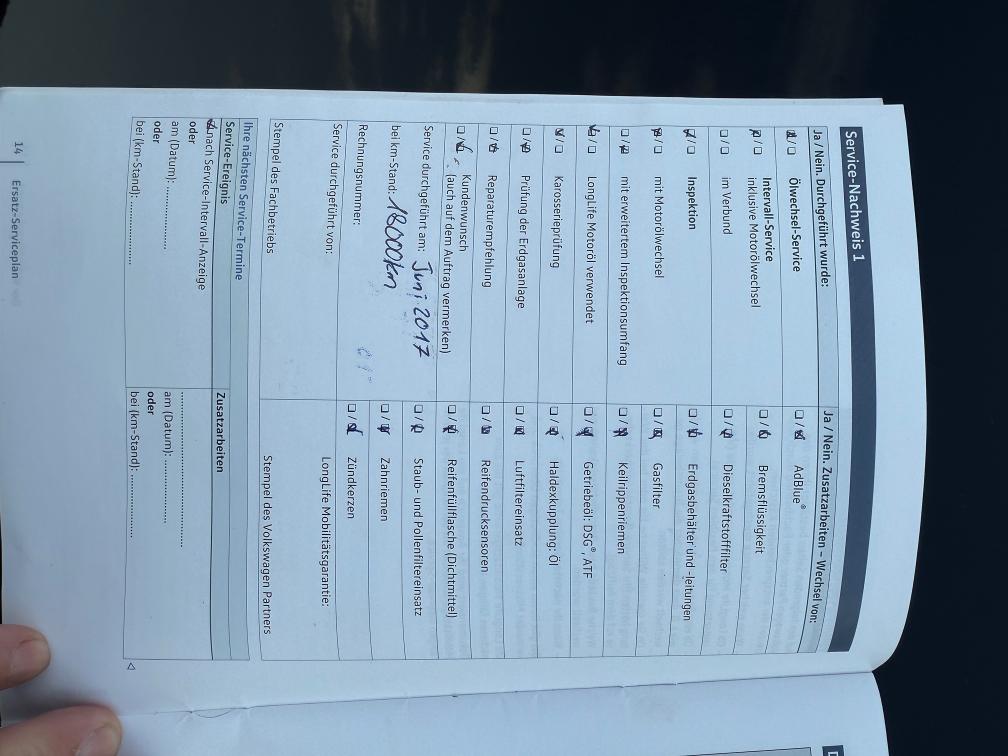 Service-Nachweis 1
Ja / Nein. Durchgeführt wurde:
☒/☐ Ölwechsel-Service
☒/☐ Intervall-Service
inklusive Motorölwechsel
☐/☐ im Verbund
☒/☐ Inspektion
☒/☐ mit Motorölwechsel
☐/☒ mit erweitertem Inspektionsumfang
☒/☐ LongLife Motoröl verwendet
☒/☐ Karosserieprüfung
☐/☒ Prüfung der Erdgasanlage
☐/☒ Reparaturempfehlung
☐/☒ Kundenwunsch
(auch auf dem Auftrag vermerken)
Service durchgeführt am: Juni 2017
bei km-Stand: 18000km
Rechnungsnummer:
Service durchgeführt von:
Stempel des Fachbetriebs
Ja / Nein. Zusatzarbeiten – Wechsel von:
☐/☒ AdBlue®
☐/☒ Bremsflüssigkeit
☐/☒ Dieselkraftstofffilter
☐/☒ Erdgasbehälter und -leitungen
☐/☒ Gasfilter
☐/☒ Keilrippenriemen
☐/☒ Getriebeöl: DSG®, ATF
☐/☒ Haldexkupplung: Öl
☐/☒ Luftfiltereinsatz
☐/☒ Reifendrucksensoren
☐/☒ Reifenfüllflasche (Dichtmittel)
☐/☒ Staub- und Pollenfiltereinsatz
☐/☒ Zahnriemen
☐/☒ Zündkerzen
LongLife Mobilitätsgarantie:
Stempel des Volkswagen Partners
Ihre nächsten Service-Termine
Service-Ereignis
☒ nach Service-Intervall-Anzeige
oder
am (Datum): ................
oder
bei (km-Stand): ................
Zusatzarbeiten
................................
am (Datum): ................
oder
bei (km-Stand): ................
14 | Ersatz-Serviceplan